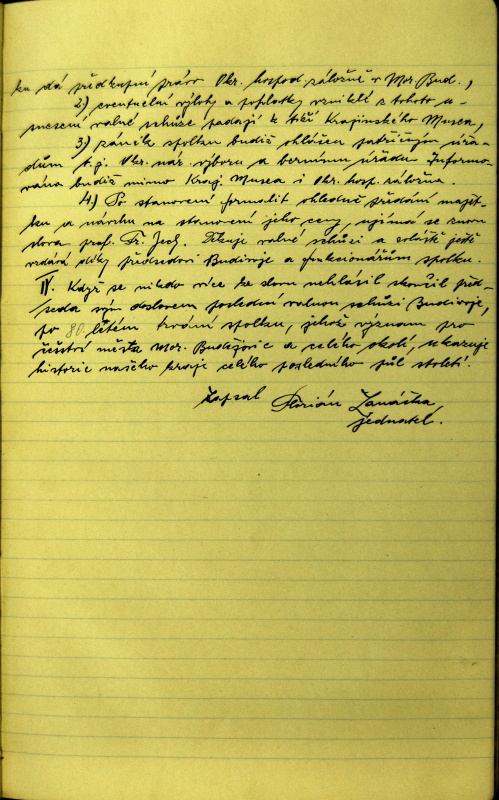 ku dá předkupní právo Okr. hospod. záložně v Mor. Bud.,
2) eventuelní výlohy a poplatky vzniklé z tohoto u-
snesení valné schůze padají k tíži Krajinského Musea,
3) zánik spolku budiž ohlášen patřičným úřa-
dům t.j. Okr. nár. výboru a bernímu úřadu. Informo-
vána budiž mimo Kraj. Musea i Okr. hosp. záložna.
4.) Po stanovení formalit ohledně předání majet-
ku a návrhu na stanovení jeho ceny ujímá se znovu
slova prof. Fr. Jech. Děkuje valné schůzi a zvláště ještě
vzdává díky předsedovi Budivoje a funkcionářům spolku.
IV. Když se nikdo více ke slovu nehlásil skončil před-
seda svým doslovem poslední valnou schůzi Budivoje,
po 80 létém trvání spolku, jehož význam pro
češství města Mor. Budějovic a celého okolí, ukazuje
historie našeho kraje celého posledního půl století.
Zapsal Florián
jednatel.